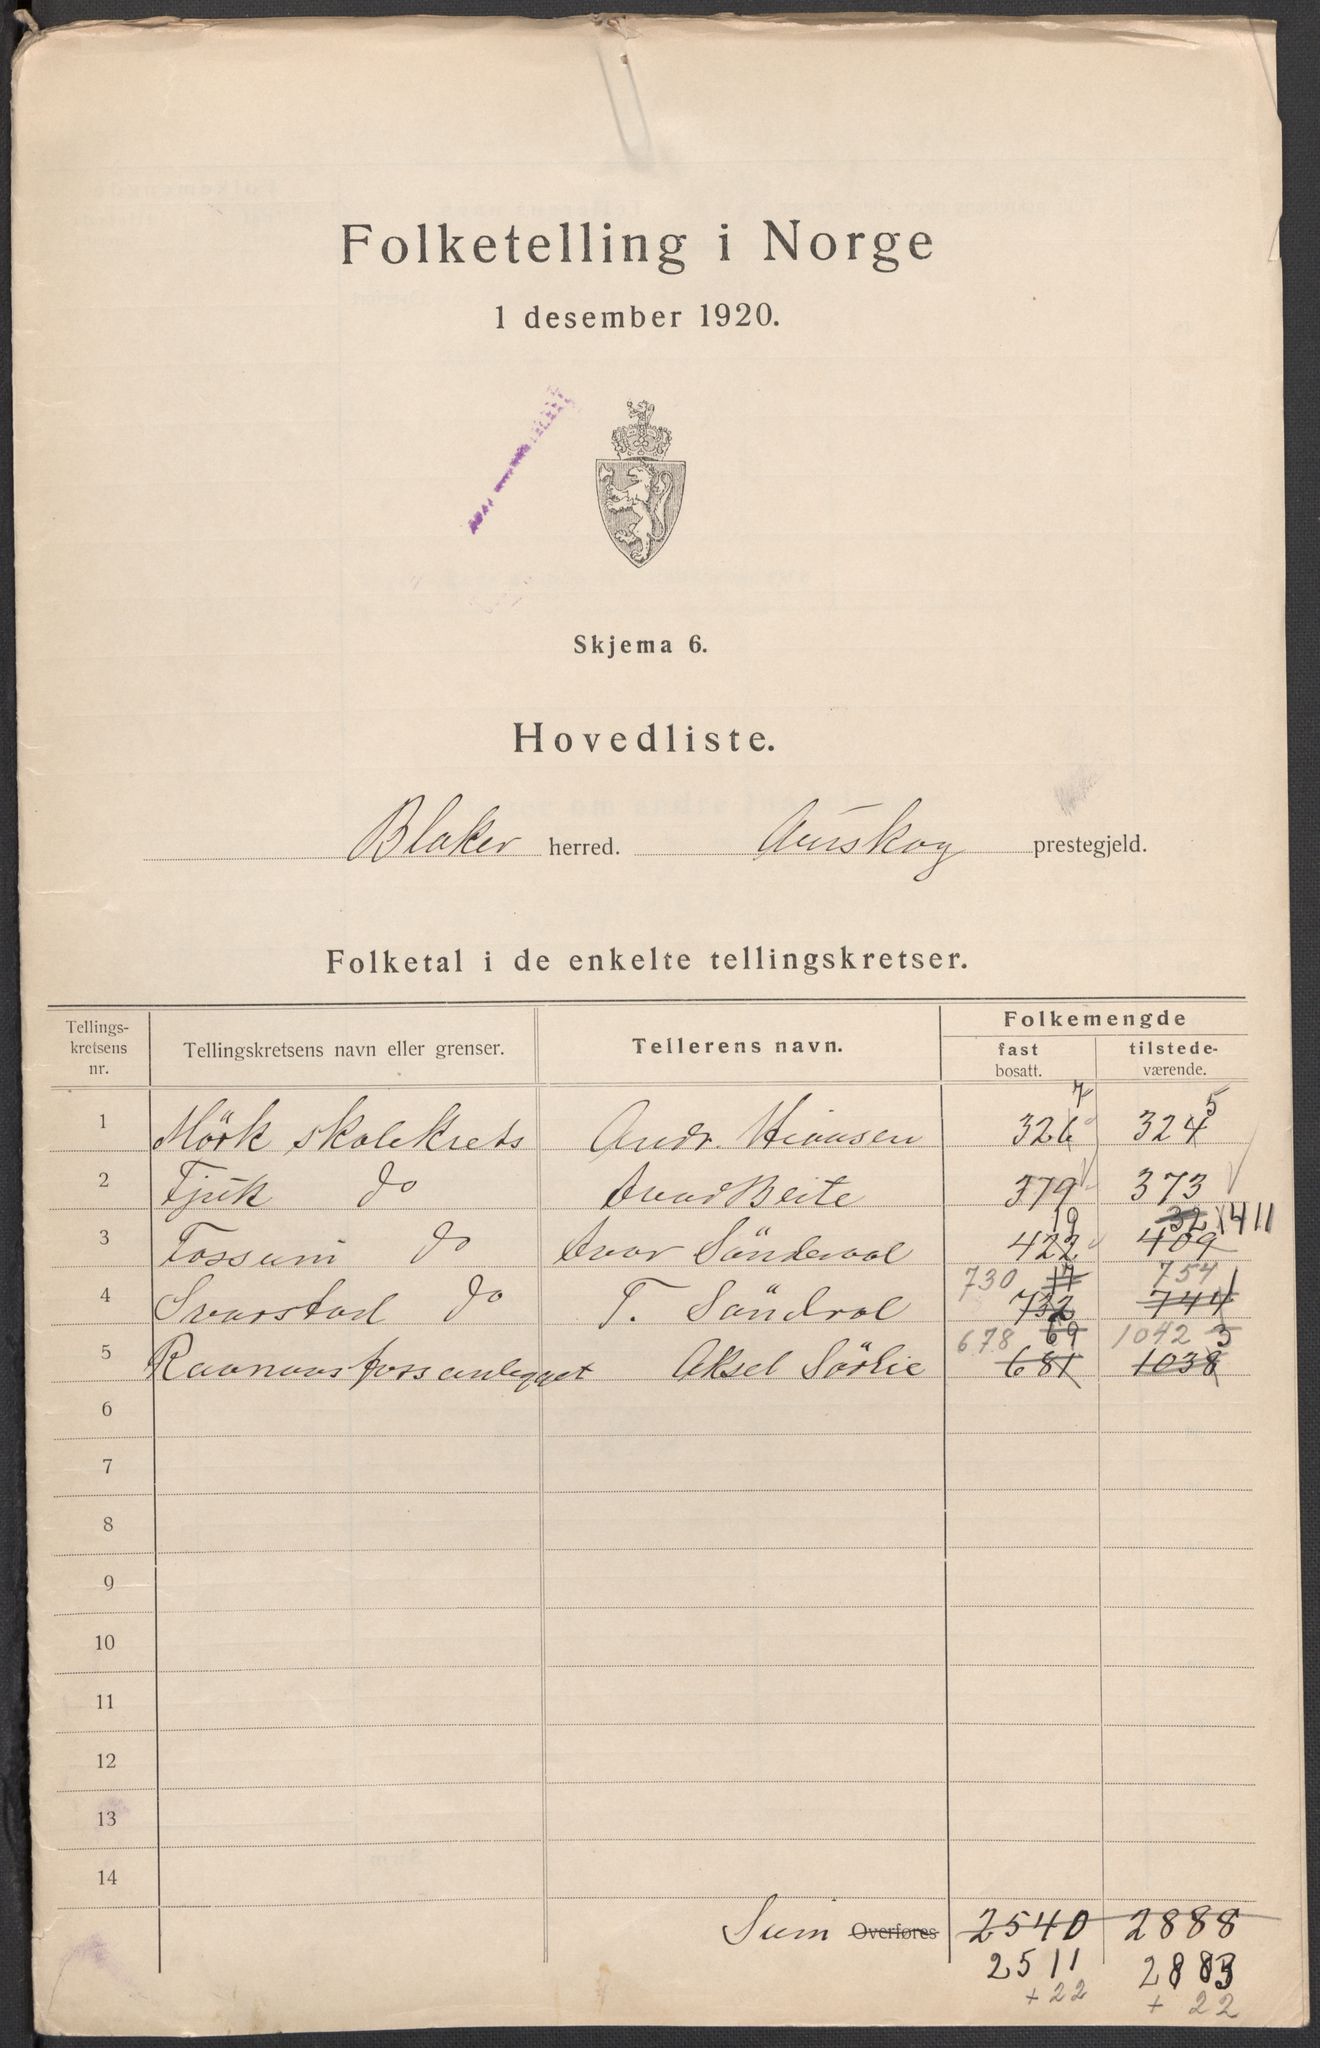 Folketelling i Norge
1 desember 1920.
Skjema 6.
Hovedliste.
Blaker herred. Aurskog prestegjeld.
Folketal i de enkelte tellingskretser.
Tellings-
kretsens
nr.
Tellingskretsens navn eller grenser.
Tellerens navn.
Folkemengde
fast
bosatt.
tilstede-
værende.
7 5
1 Mörk skolekrets Andr. 326 324
2 Tjuk do 379 373
19 32 411
3 Fossum do Ivar Sönderaal 422 409
730 17 754 1
4 Svarstad do T. Söndral 732 744
678 69 1042 3
5 Raanaasfossanlegget Aksel Sörlie 681 1038
6
7
8
9
10
11
12
13
14
Sum Overføres 2540 2888
2511 2883
+22 + 22